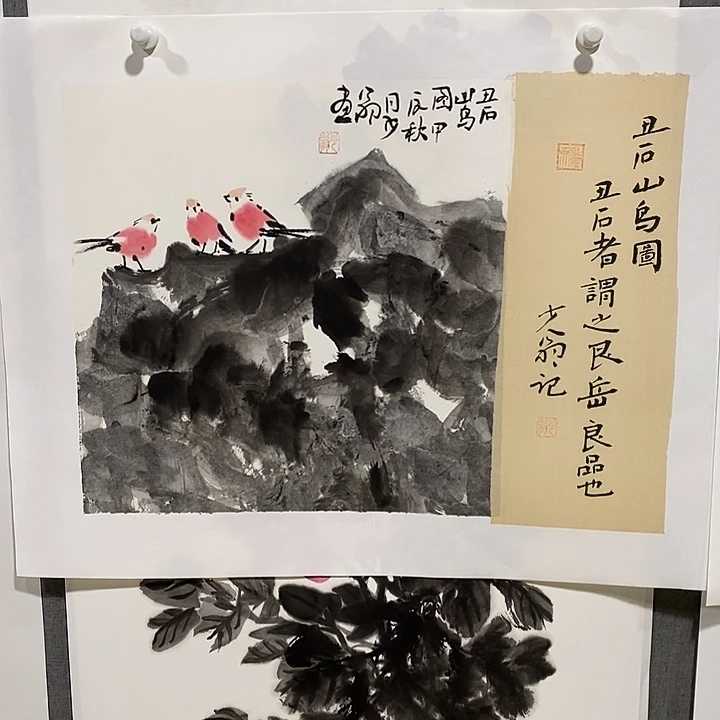 丑石山鸟圖
丑石者謂之艮岳良品也
少翁记
丑石
山鸟
圖甲
辰秋
月少
翁
画